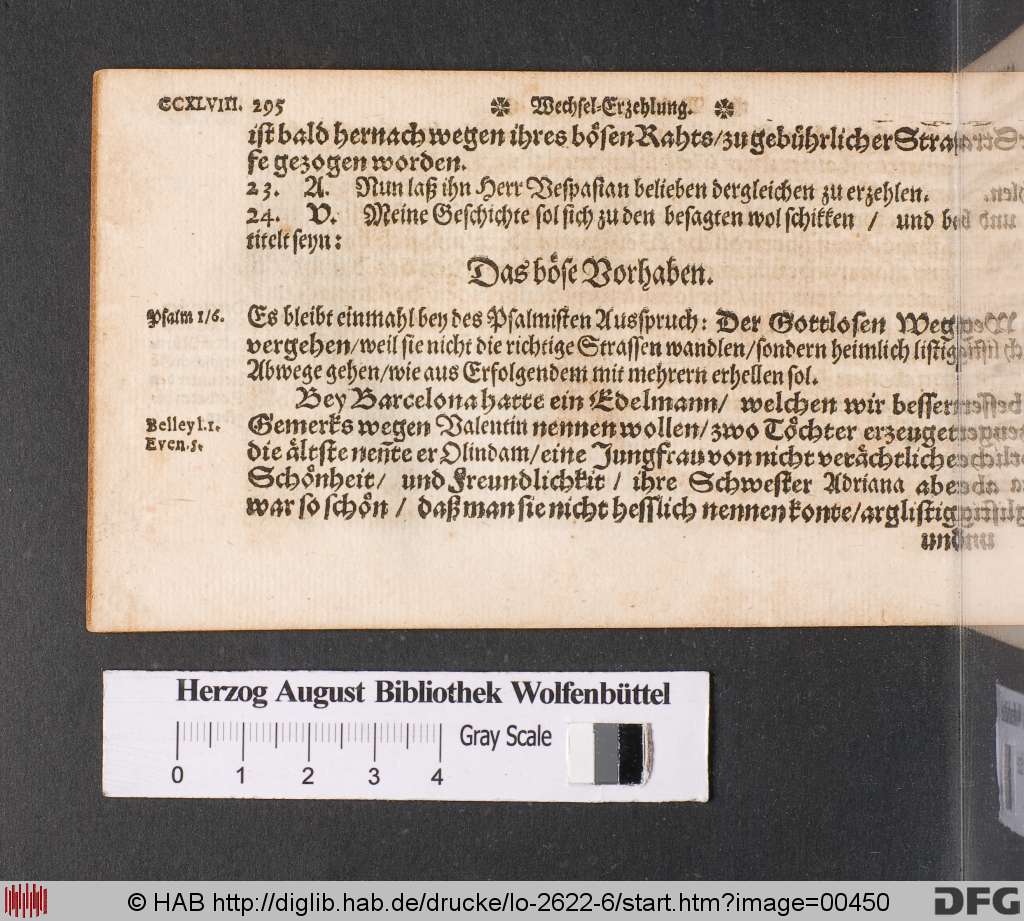 CCXLVIII. 295 Wechsel-Erzehlung.
ist bald hernach wegen ihres bösen Rahts/zu gebührlicher Straf-
fe gezogen worden.
23. A. Nun laß ihn Herr Vespasian belieben dergleichen zu erzehlen.
24. V. Meine Geschichte sol sich zu den besagten wol schikken / und be-
titelt seyn:
Das böse Vorhaben.
Psalm 1/6. Es bleibt einmahl bey des Psalmisten Ausspruch: Der Gottlosen Weg
vergehen/weil sie nicht die richtige Strassen wandlen/sondern heimlich listig
Abwege gehen/wie aus Erfolgendem mit mehrern erhellen sol.
Bey Barcelona hatte ein Edelmann/ welchen wir bessern
Belley l.1. Gemerks wegen Valentin nennen wollen/zwo Töchter erzeuget
Even.5. die ältste neñte er Olindam/eine Jungfrau von nicht verächtlicher
Schönheit/ und Freundlichkit/ ihre Schwester Adriana aber
war so schön / daß man sie nicht hesslich nennen konte/arglistig
und
Herzog August Bibliothek Wolfenbüttel
Gray Scale
0 1 2 3 4
© HAB http://diglib.hab.de/drucke/lo-2622-6/start.htm?image=00450
DFG